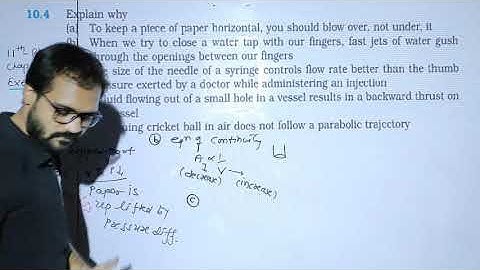 10.4 Explain why
(a) To keep a piece of paper horizontal, you should blow over, not under, it
When we try to close a water tap with our fingers, fast jets of water gush
through the openings between our fingers
size of the needle of a syringe controls flow rate better than the thumb
exerted by a doctor while administering an injection
fluid flowing out of a small hole in a vessel results in a backward thrust on
vessel
cricket ball in air does not follow a parabolic trajectory
11th
(b) eqn of continuity
A ∝ 1
V
(decrease) (increase)
(c)
Paper is
up lifted by
pressure diff.